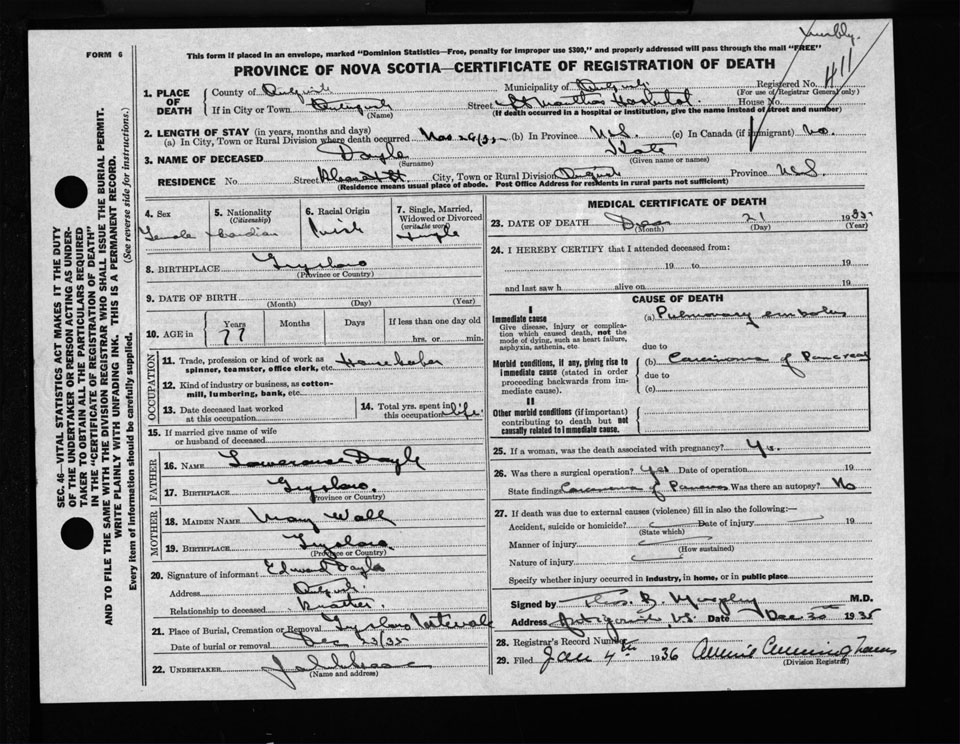 FORM 6
This form if placed in an envelope, marked "Dominion Statistics—Free, penalty for improper use $300," and properly addressed will pass through the mail "FREE"
PROVINCE OF NOVA SCOTIA—CERTIFICATE OF REGISTRATION OF DEATH
1. PLACE OF DEATH
County of
Municipality of
Registered No.
(For use of Registrar General only)
If in City or Town
(Name)
Street St Martha's Hospital House No.
(If death occurred in a hospital or institution, give the name instead of street and number)
2. LENGTH OF STAY (in years, months and days)
(a) In City, Town or Rural Division where death occurred (b) In Province N.S. (c) In Canada (if immigrant) No.
3. NAME OF DECEASED Doyle Kate
(Surname) (Given name or names)
RESIDENCE No Street City, Town or Rural Division Province N.S.
(Residence means usual place of abode. Post Office Address for residents in rural parts not sufficient)
4. Sex
Female
5. Nationality
(Citizenship)
6. Racial Origin
Irish
7. Single, Married, Widowed or Divorced
(write the word)
Single
8. BIRTHPLACE
(Province or Country)
9. DATE OF BIRTH
(Month) (Day) (Year)
10. AGE in
Years Months Days If less than one day old
77 hrs. or min.
OCCUPATION
11. Trade, profession or kind of work as spinner, teamster, office clerk, etc.
12. Kind of industry or business, as cotton-mill, lumbering, bank, etc.
13. Date deceased last worked at this occupation
14. Total yrs. spent in this occupation life
15. If married give name of wife or husband of deceased
FATHER
16. NAME Lawrence Doyle
17. BIRTHPLACE
(Province or Country)
MOTHER
18. MAIDEN NAME Mary Wall
19. BIRTHPLACE
(Province or Country)
20. Signature of informant Edward Doyle
Address
Relationship to deceased Brother
21. Place of Burial, Cremation or Removal Intervale
Date of burial or removal Dec 23/35
22. UNDERTAKER
(Name and address)
MEDICAL CERTIFICATE OF DEATH
23. DATE OF DEATH Dec 21 1935
(Month) (Day) (Year)
24. I HEREBY CERTIFY that I attended deceased from:
19 to 19
and last saw h alive on 19
CAUSE OF DEATH
I
Immediate cause
Give disease, injury or complication which caused death, not the mode of dying, such as heart failure, asphyxia, asthenia, etc.
(a) Pulmonary embolus
due to
Morbid conditions, if any, giving rise to immediate cause (stated in order proceeding backwards from immediate cause).
(b) Carcinoma of Pancreas
due to
(c)
II
Other morbid conditions (if important) contributing to death but not causally related to immediate cause.
25. If a woman, was the death associated with pregnancy?
26. Was there a surgical operation? Yes Date of operation 19
State findings Carcinoma of Pancreas Was there an autopsy? No
27. If death was due to external causes (violence) fill in also the following:—
Accident, suicide or homicide? Date of injury 19
(State which)
Manner of injury
(How sustained)
Nature of injury
Specify whether injury occurred in industry, in home, or in public place
Signed by Thos. B. Murphy M.D.
Address Antigonish, N.S. Date Dec 30th 1935
28. Registrar's Record Number
29. Filed Jan 4th 1936 Annie Cunningham
(Division Registrar)
SEC. 46—VITAL STATISTICS ACT MAKES IT THE DUTY
OF THE UNDERTAKER OR PERSON ACTING AS UNDER-
TAKER TO OBTAIN ALL THE PARTICULARS REQUIRED
IN THE "CERTIFICATE OF REGISTRATION OF DEATH"
AND TO FILE THE SAME WITH THE DIVISION REGISTRAR WHO SHALL ISSUE THE BURIAL PERMIT.
WRITE PLAINLY WITH UNFADING INK. THIS IS A PERMANENT RECORD.
Every item of information should be carefully supplied. (See reverse side for instructions.)